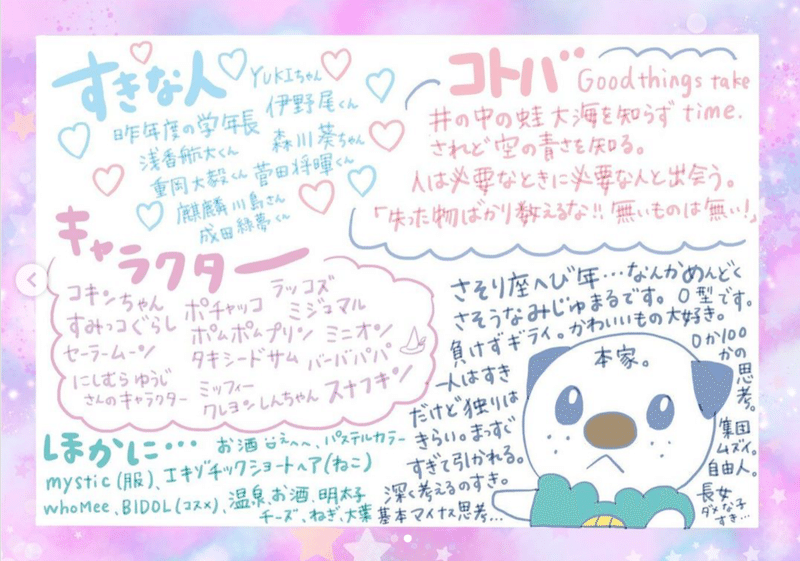 すきな人
YUKIちゃん
伊野尾くん
昨年度の学年長
森川葵ちゃん
浅香航大くん
重岡大毅くん 菅田将暉くん
麒麟川島さん
成田緑夢くん
コトバ
Good things take time.
井の中の蛙 大海を知らず
されど空の青さを知る。
人は必要なときに必要な人と出会う。
「失った物ばかり数えるな!!無いものは無い!」
キャラクター
コキンちゃん ポチャッコ ラッコズ
すみっコぐらし ポムポムプリン ミジュマル
セーラームーン タキシードサム ミニオン
バーバパパ
にしむらゆうじ
さんのキャラクター
ミッフィー
クレヨンしんちゃん スナフキン
ほかに…
お酒 パステルカラー
mystic(服)、エキゾチックショートヘア(ねこ)
whoMee、BIDOL(コスメ)、温泉、お酒、明太子
チーズ、ねぎ、大葉
さそり座へび年…なんかめんどく
さそうなみじゅまるです。O型です。
負けずギライ。かわいいもの大好き。
一人はすき
だけど独りは
きらい。まっすぐ
すぎて引かれる。
深く考えるのすき。
基本マイナス思考…
本家。
0か100
かの思考。
集団
ムズイ。
自由人。
長女
ダメな子
すき…